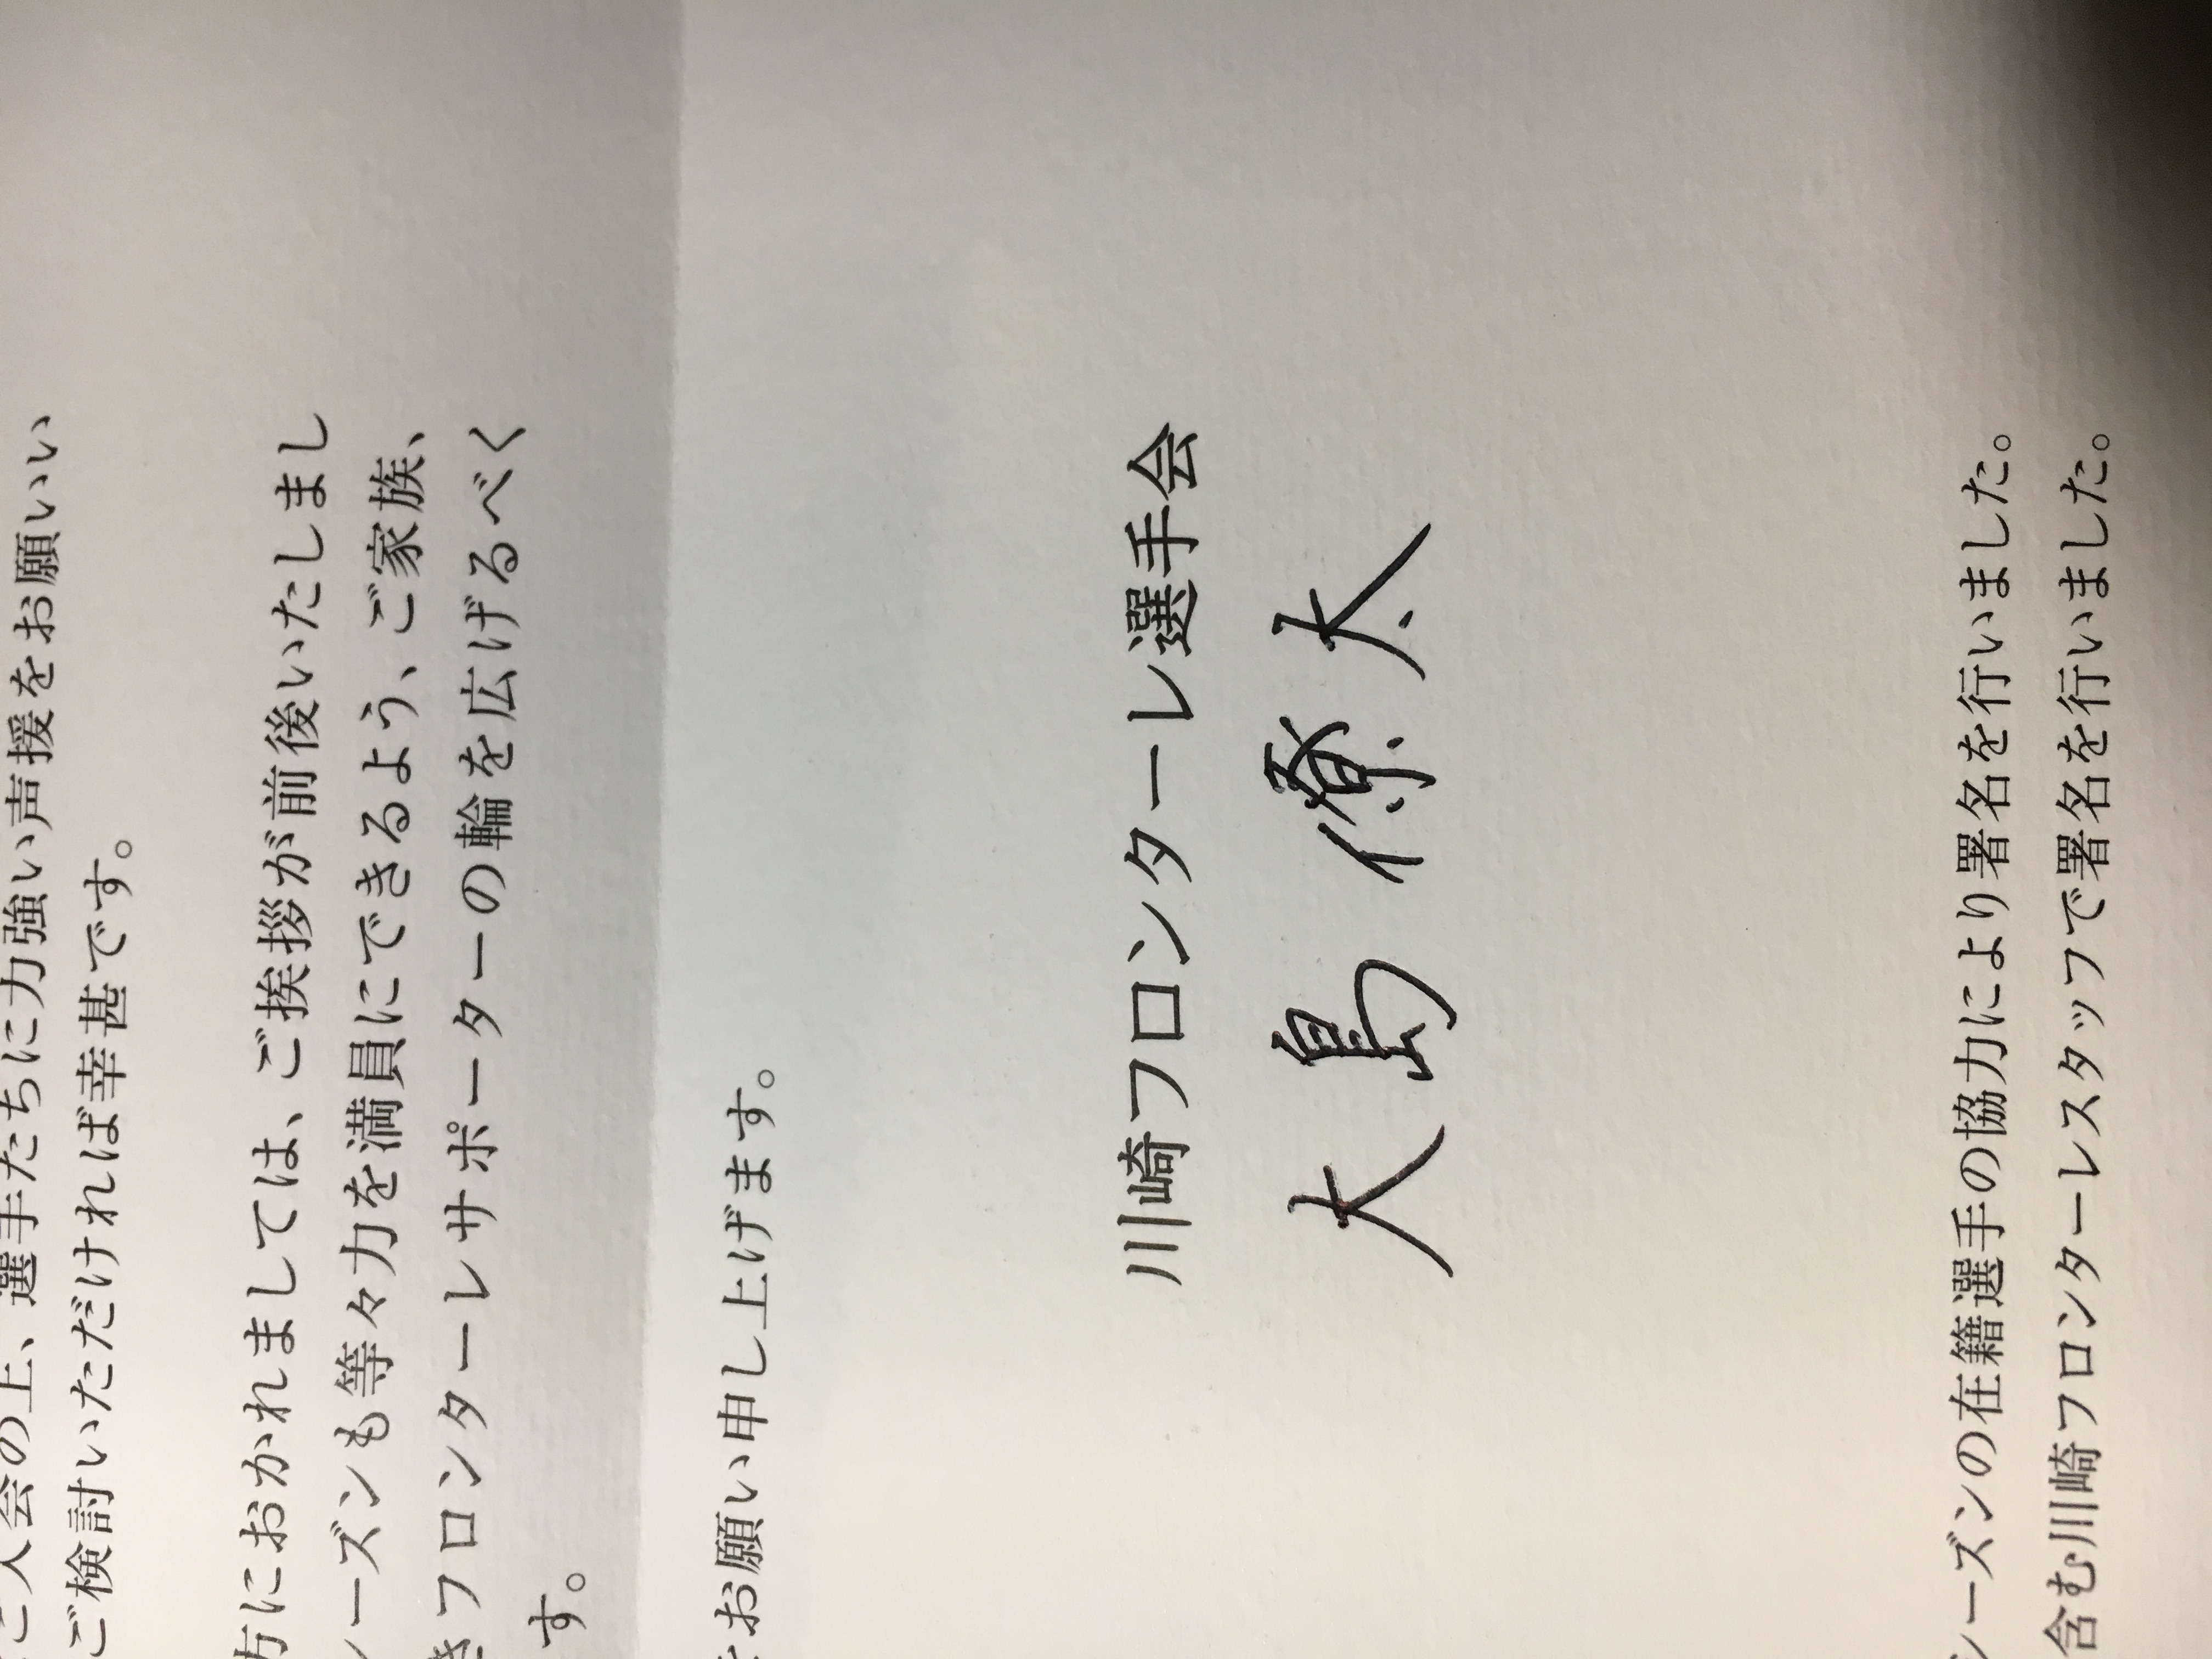 ご入会の上、選手たちに力強い声援をお願いい
ご検討いただければ幸甚です。
方におかれましては、ご挨拶が前後いたしまし
ーズンも等々力を満員にできるよう、ご家族、
きフロンターレサポーターの輪を広げるべく
す。
お願い申し上げます。
川崎フロンターレ選手会
大島僚太
シーズンの在籍選手の協力により署名を行いました。
含む川崎フロンターレスタッフで署名を行いました。